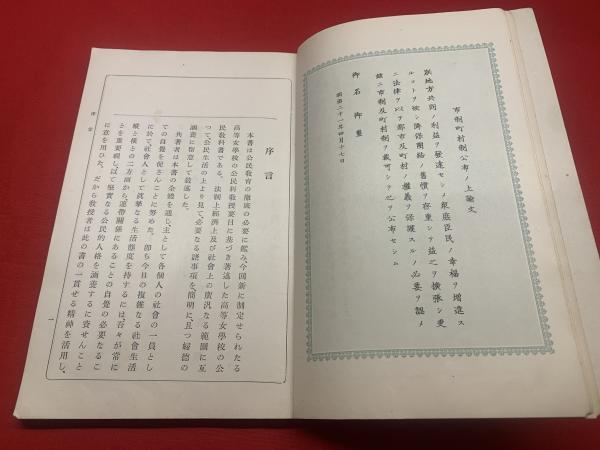 市制町村制公布ノ上諭文
朕地方共同ノ利益ヲ發達セシメ衆庶臣民ノ幸福ヲ增進ス
ルコトヲ欲シ隣保團結ノ舊慣ヲ存重シテ益之ヲ擴張シ更
ニ法律ヲ以テ都市及町村ノ權義ヲ保護スルノ必要ヲ認メ
茲ニ市制及町村制ヲ裁可シテ之ヲ公布セシム
御名御璽
明治二十一年四月十七日
序言
本書は公民教育の徹底の必要に鑑み、今回新に制定せられたる
高等女學校の公民科教授要目に基づき著述した高等女學校の公
民教科書である。法制上經濟上及び社會上の廣汎なる範圍に互
つて、公民生活の上より見て、必要なる諸事項を、簡明に、且つ婦德の
涵養に留意して敍述した。
尚著者は本書の全體を通じ、主として各個人の社會の一員とし
ての自覺を促さんことに努めた。卽ち今日の複雜なる社會生活
に於て、社會人として眞摯なる生活態度を持するには、吾々が常に
縱と橫との二方面から、連帶關係にあることの自覺の必要なるこ
とを重要視し、以て堅實なる公民的人格を涵養するに資せんこと
に意を用ひた。だから教授者は此の書の一貫せる精神を活用し、
序言
一